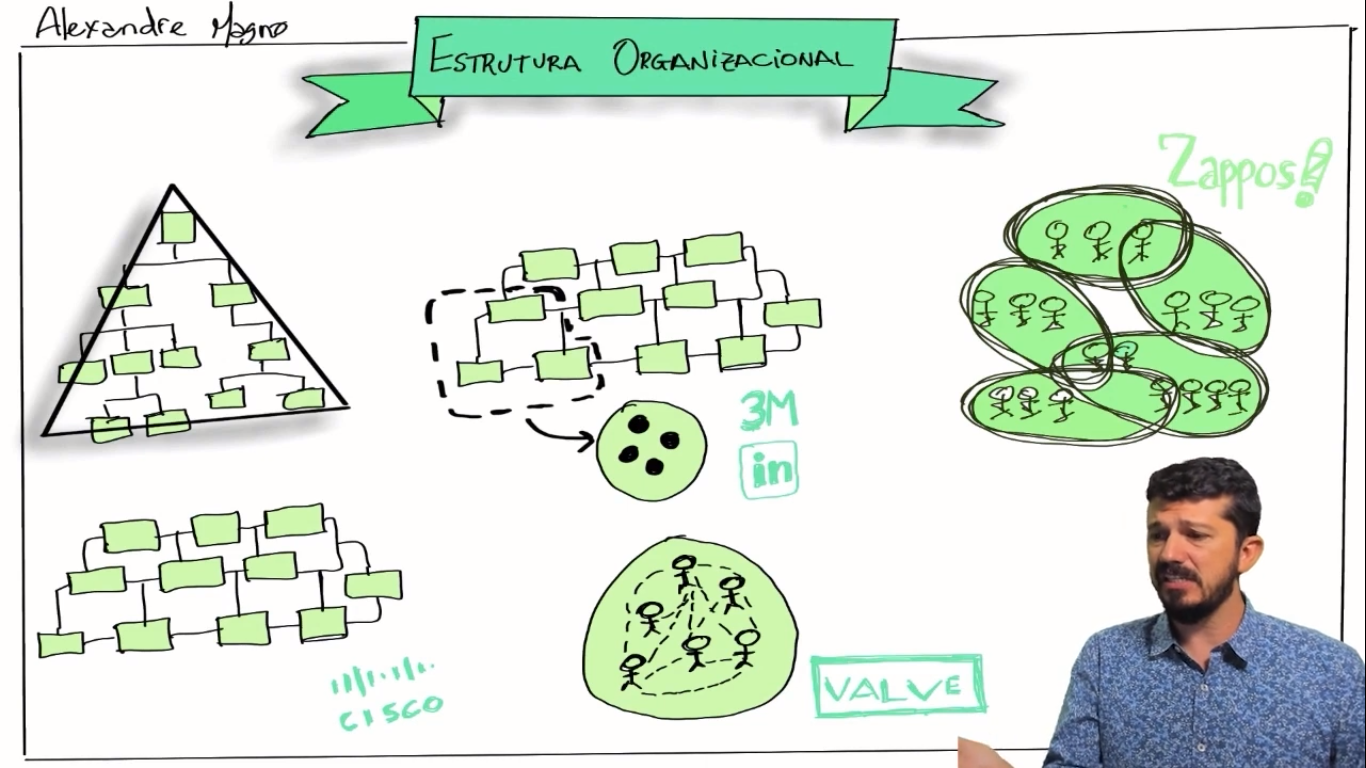 Alexandre Magno
ESTRUTURA ORGANIZACIONAL
Zappos!
3M
in
CISCO
VALVE